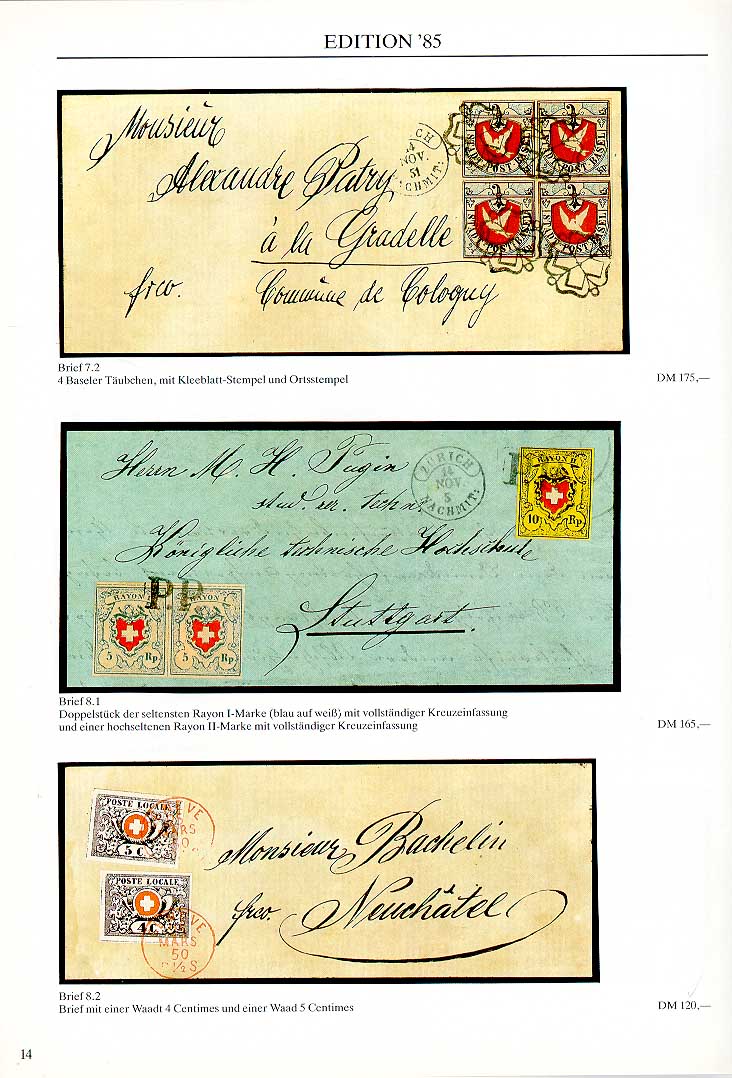 EDITION '85
Monsieur
Alexandre Patry
à la Gradelle
frco. Commune de Cologny
CH
14
NOV.
51
ACHMIT:
STADT-POST-BASEL
STADT-POST-BASEL
STADT-POST-BASEL
STADT-POST-BASEL
Brief 7.2
4 Baseler Täubchen, mit Kleeblatt-Stempel und Ortsstempel
DM 175,—
Herrn M. H Pugin
stud. rer. techn.
Königliche technische Hochschule
Stuttgart.
ZÜRICH
14
NOV.
5
NACHMIT:
RAYON II
10 Rp
P.P
RAYON I
5 Rp
RAYON I
5 Rp
Brief 8.1
Doppelstück der seltensten Rayon I-Marke (blau auf weiß) mit vollständiger Kreuzeinfassung
und einer hochseltenen Rayon II-Marke mit vollständiger Kreuzeinfassung
DM 165,—
POSTE LOCALE
5 C
POSTE LOCALE
4 C
ÈVE
ARS
50
ÈVE
MARS
50
½ S
Monsieur Bachelin
frco. Neuchâtel
Brief 8.2
Brief mit einer Waadt 4 Centimes und einer Waad 5 Centimes
DM 120,—
14